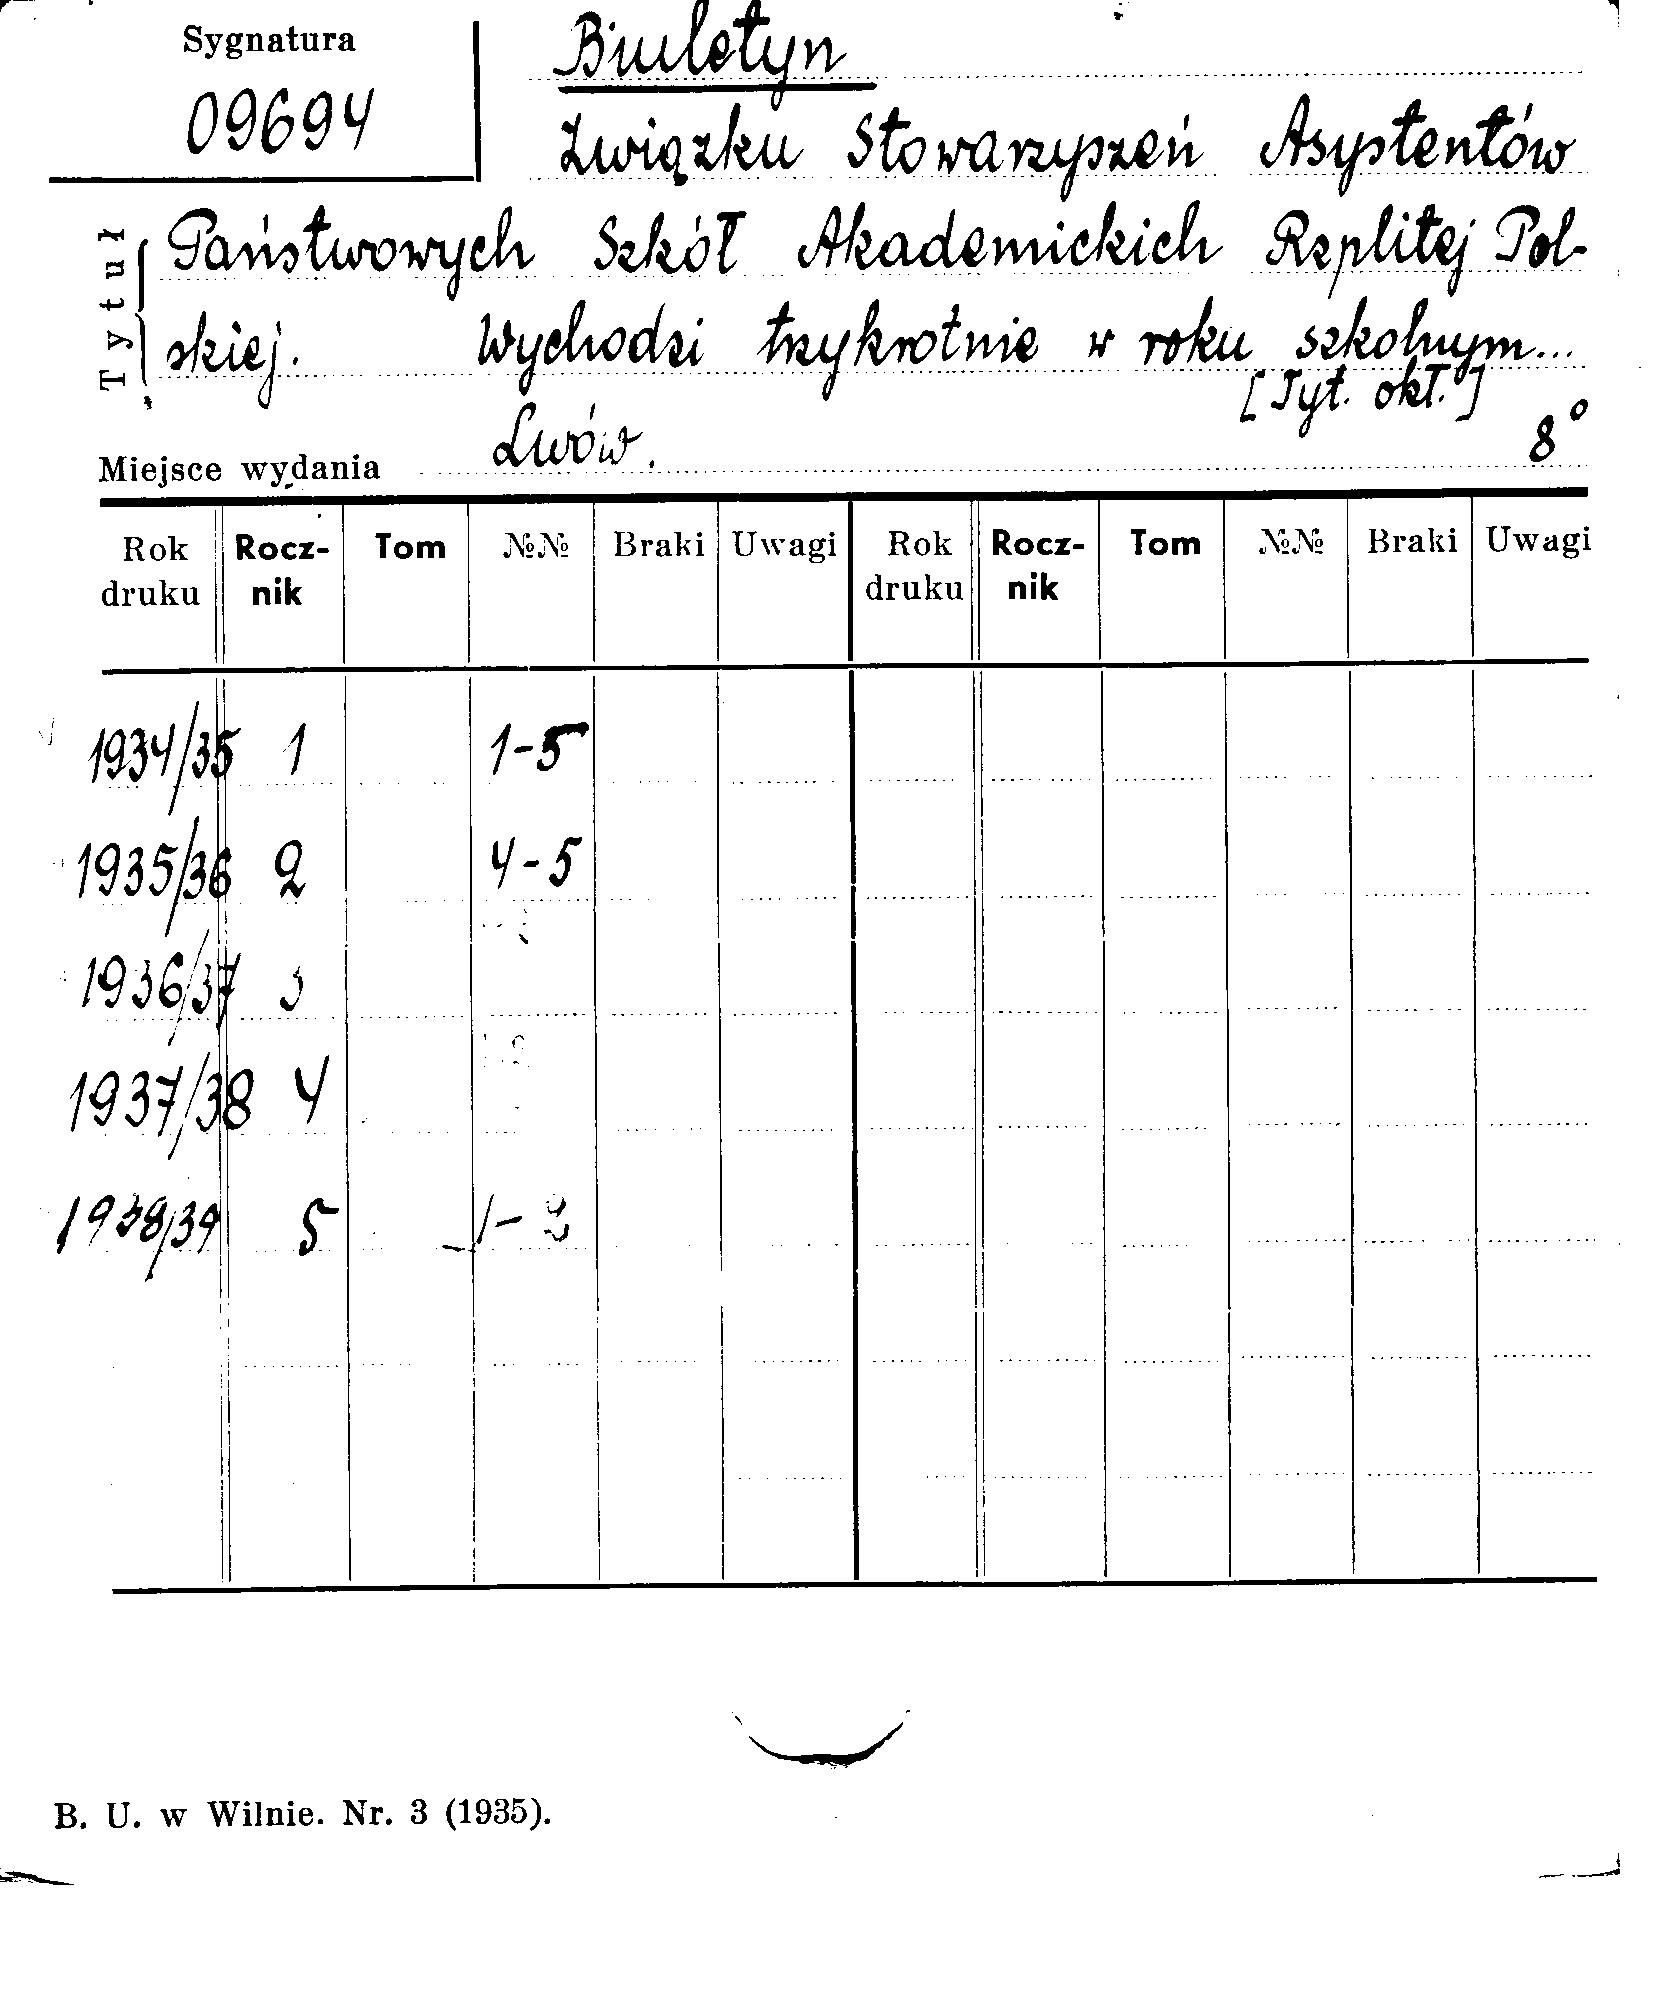 Sygnatura
09694
Biuletyn
Związku Stowarzyszeń Asystentów
Tytuł
Państwowych Szkół Akademickich Rzplitej Pol-
skiej. Wychodzi trzykrotnie w roku szkolnym...
[Tyt. okł.]
Miejsce wydania Lwów. 8°
Rok druku Rocz-nik Tom №№ Braki Uwagi Rok druku Rocz-nik Tom №№ Braki Uwagi
1934/35 1 1-5
1935/36 2 4-5
1936/37 3
1937/38 4
1938/39 5 1-
B. U. w Wilnie. Nr. 3 (1935).